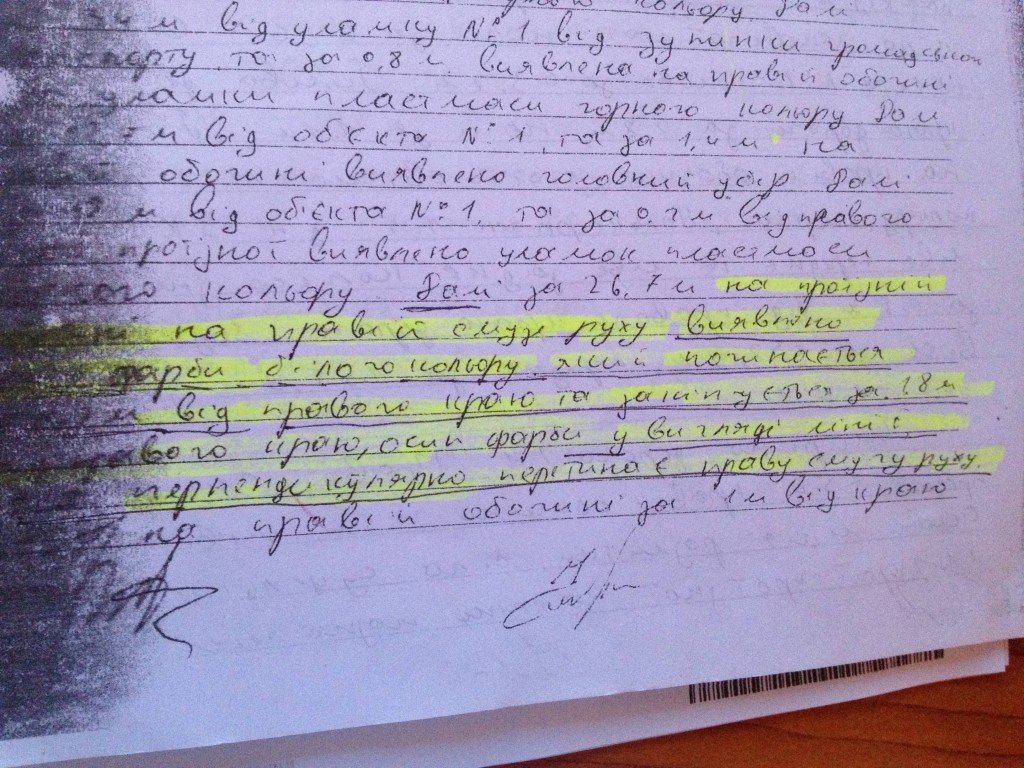 кольору. Далі
м від уламку № 1 від зупинки громадського
порту та за 0,8 м. виявлена на правій обочині
уламки пластмаси чорного кольору Далі
м від об'єкта № 1, та за 1,4 м на
обочині виявлено головний убір Далі
м від об'єкта № 1, та за 0,7 м від правого
проїзної виявлено уламок пластмаси
кольору Далі за 26,7 м на проїзній
на правій смузі руху виявлено
фарби білого кольору, який починається
м від правого краю та закінчується за 1.8 м
вого краю, осип фарби у вигляді лінії
перпендикулярно перетинає праву смугу руху.
на правій обочині за 1 м від краю